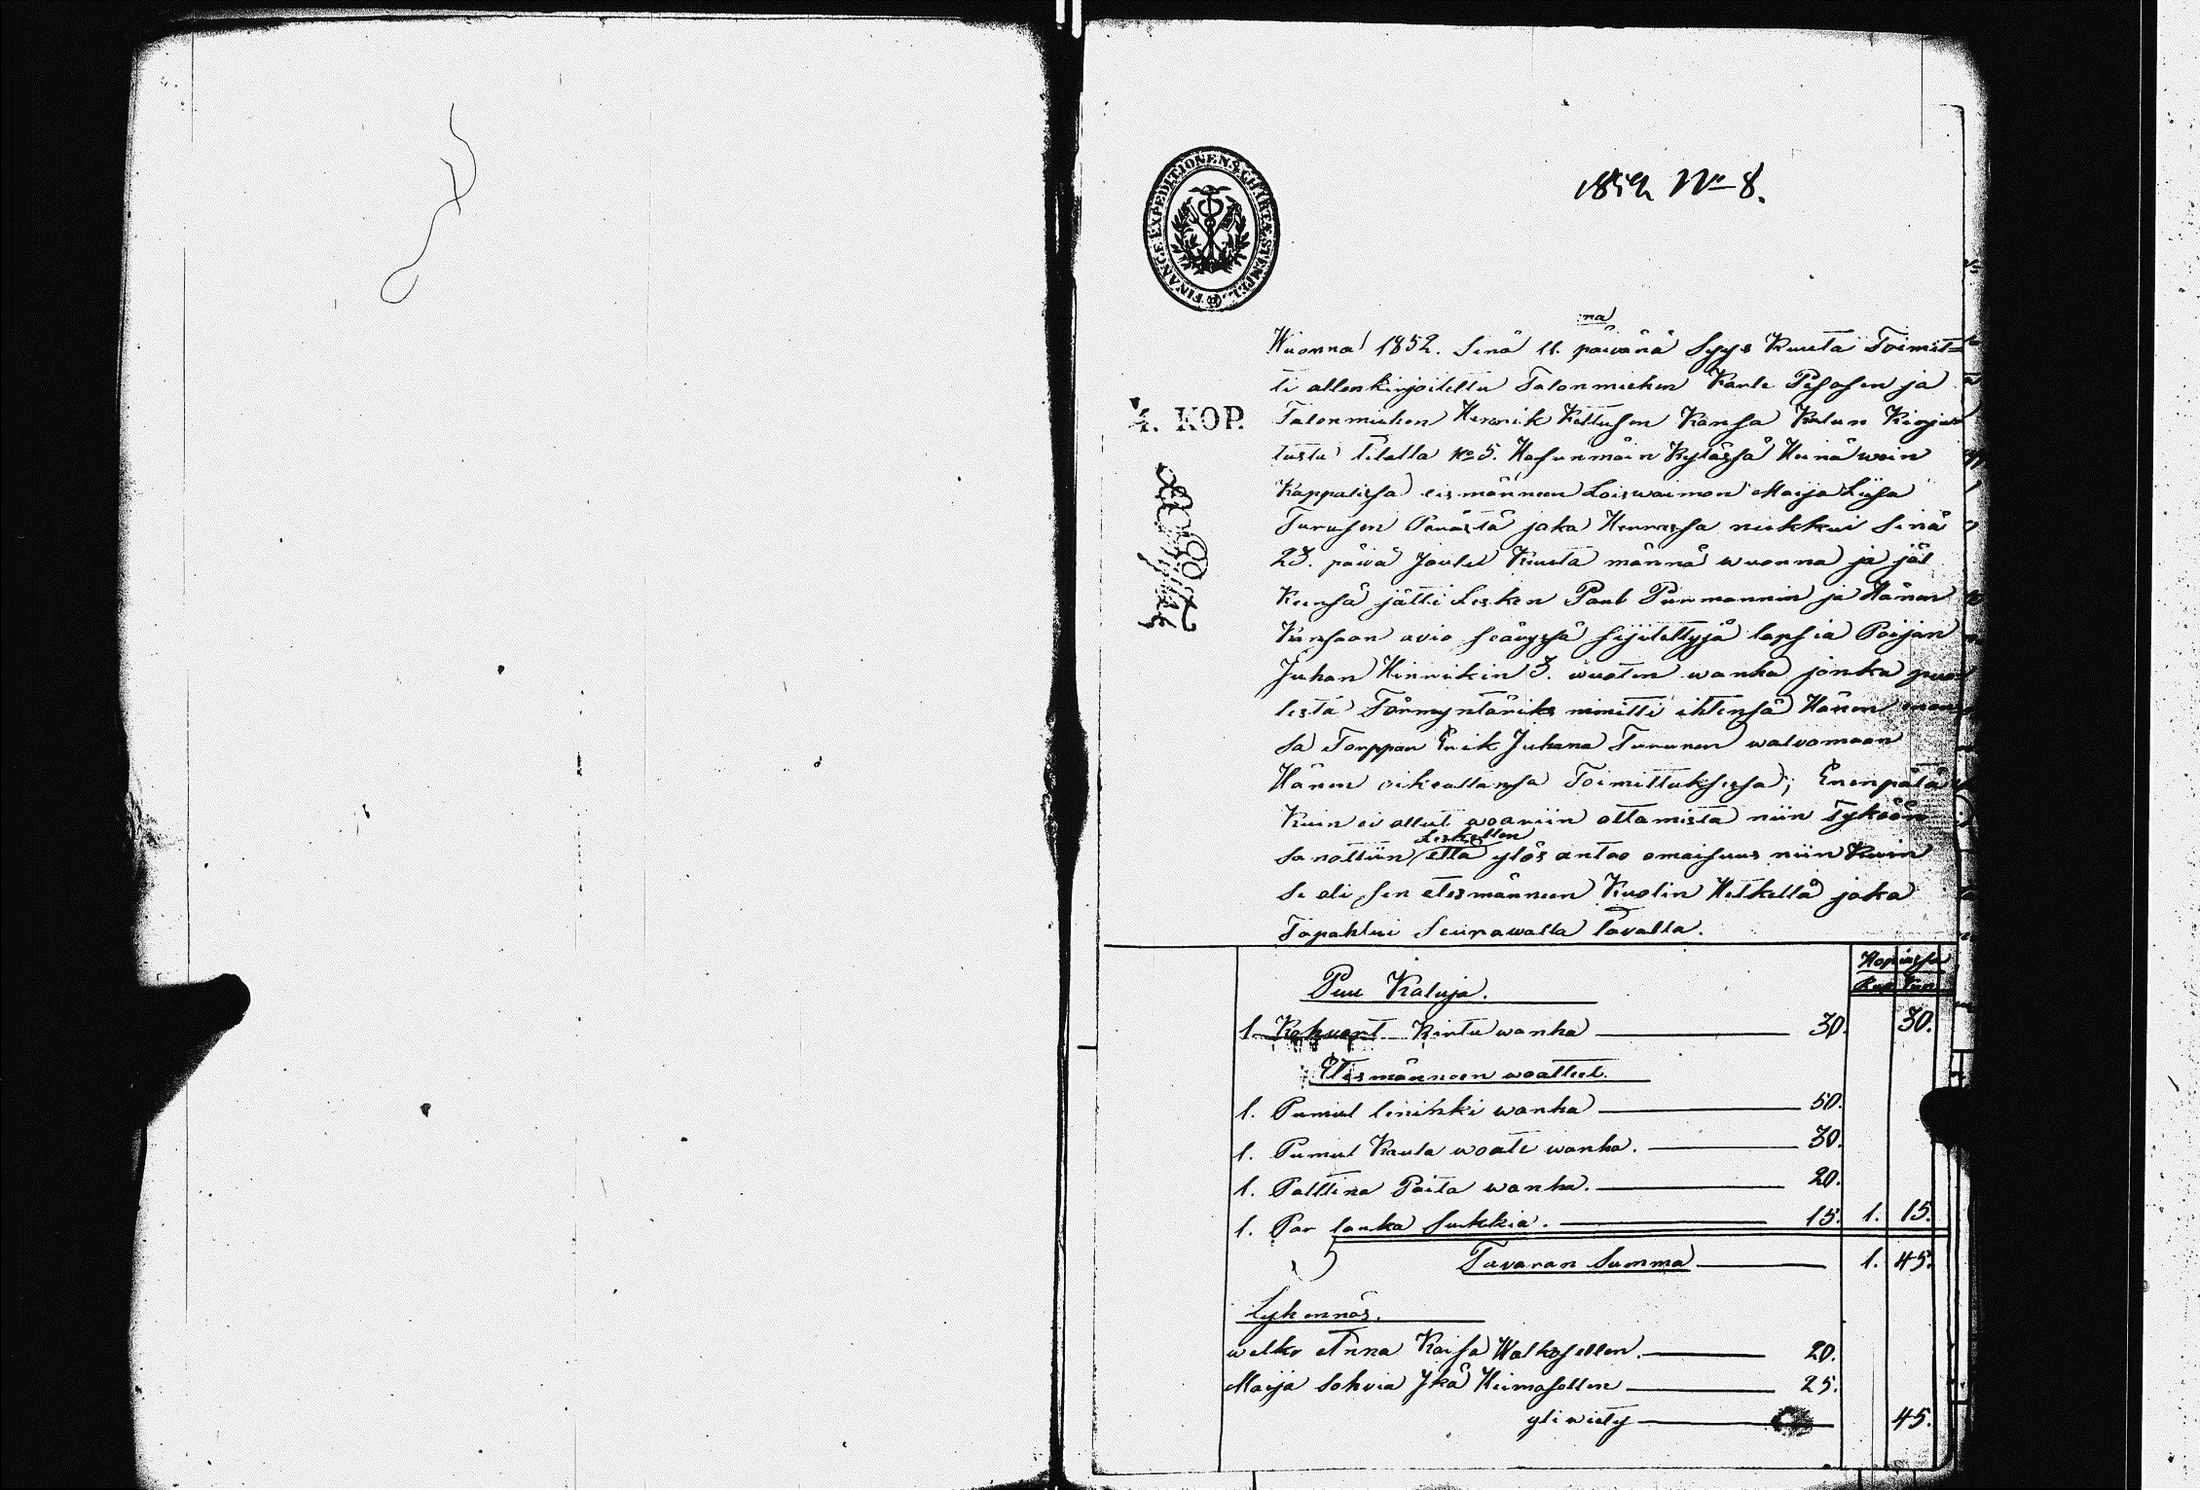 1852 No 8.
FINANCE EXPEDITIONENS CHARTÆ STEMPEL.
4. KOP.
Wuonna 1852. Sinä 11.na päivänä Syys Kuuta Toimit-
ti allenkirjoitettu Talonmiehen Paul Pesosen ja
Talonmiehen Henrik Kettusen Kansa Kalun Kirjut
tusta tilalla No 5. Hasunmäin Kylässä Heinäwein
Kappelissa eismänneen Loiswaimon Maija Liisa
Turusen Perästä joka Herrassa nukkui Sinä
23. päivä Joulu Kuuta männä wuonna ja jäl
keensä jätti Lesken Paul Purmannin ja Hänen
Kansaan avio seäyssä sijitettyjä lapsia Poijan
Juhan Hinrikin 3. wuoten wanha jonka puo
lesta Förmyntäriks nimitti ihtensä Hänen enon
sa Torppar Erik Juhana Turunen walvomaan
Hänen oikeuttansa Toimituksessa; Enenpätä
Kuin ei ollut waariin ottamista niin Tyköön
sanottiin Leskellen että ylös antaa omaisuus niin Kuin
se oli sen etesmänneen Kuolin Hetkellä joka
Tapahtui Seurawalla tavalla.
Hopiassa
Rup Kop
Puu Kaluja.
1. Kirtu wanha 30. 30.
Etesmänneen woatteet.
1. Pumul leninki wanha 50.
1. Pumul Kaula woate wanha. 30.
1. Palttina Paita wanha. 20.
1. Par lanka Sukkia. 15. 1. 15.
Tavaran Summa 1. 45.
Lyhennös.
welko Anna Kaisa Walkosellen. 20.
Maija Sohvia Ikä Heimosellen 25.
yli wiety 45.